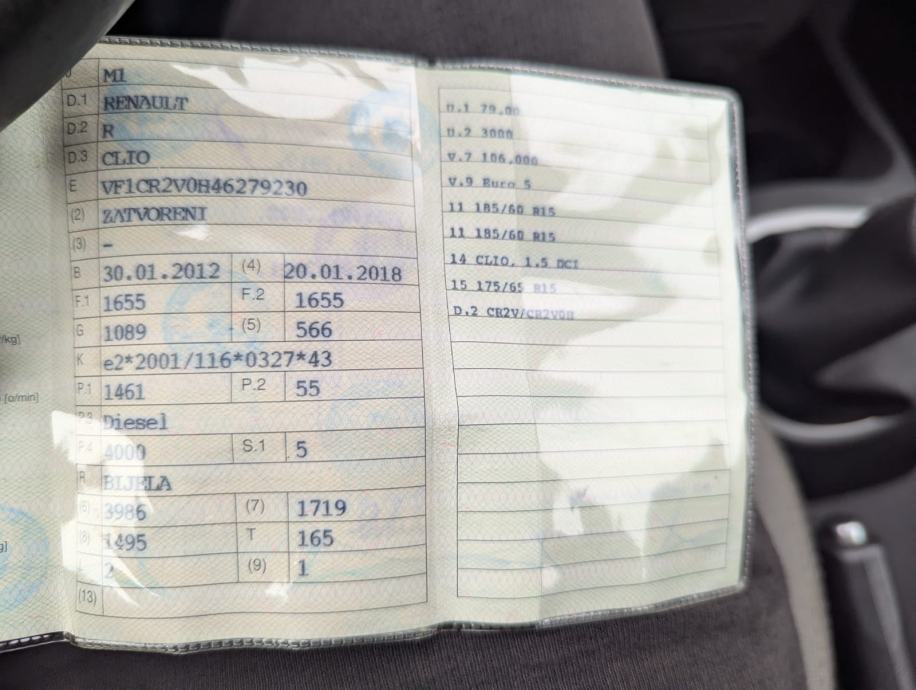 J M1
D.1 RENAULT
D.2 R
D.3 CLIO
E VF1CR2V0H46279230
(2) ZATVORENI
(3) –
B 30.01.2012 (4) 20.01.2018
F.1 1655 F.2 1655
G 1089 (5) 566
K e2*2001/116*0327*43
P.1 1461 P.2 55
P.3 Diesel
P.4 4000 S.1 5
R BIJELA
(6) 3986 (7) 1719
(8) 1495 T 165
2 (9) 1
(13)
/kg]
[o/min]
g]
U.1 79,00
U.2 3000
V.7 106,000
V.9 Euro 5
11 185/60 R15
11 185/60 R15
14 CLIO, 1.5 DCI
15 175/65 R15
D.2 CR2V/CR2V0H